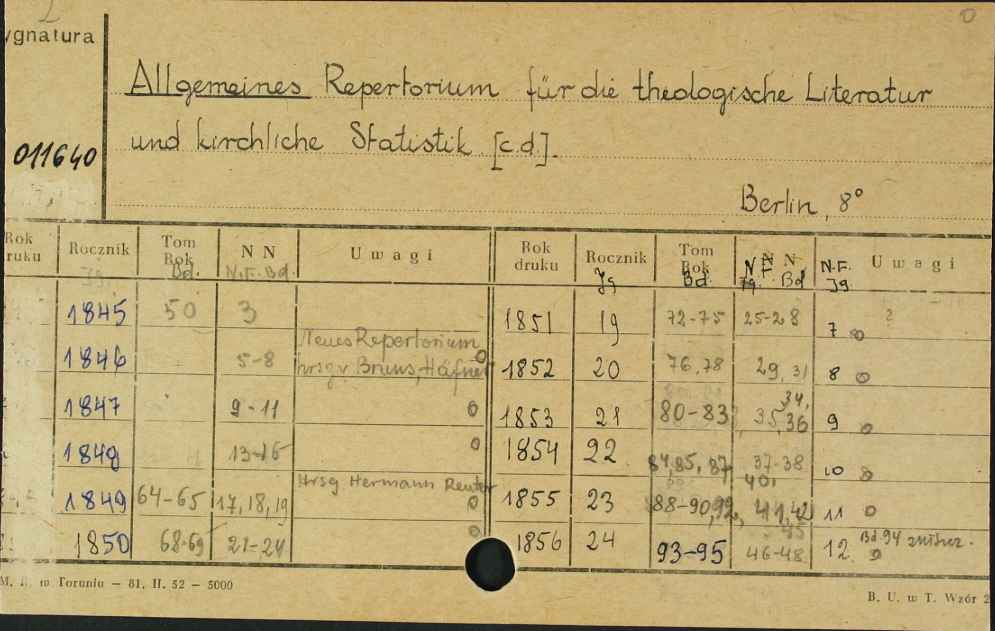 ygnatura
011640
Allgemeines Repertorium für die theologische Literatur
und kirchliche Statistik [c.d].
Berlin, 8°
Rok ruku Rocznik Jg. Tom Rok Bd. N N N.F. Bd. Uwagi Rok druku Rocznik Jg Tom Rok Bd. N N N.F. Bd N.F. Jg. Uwagi
1845 50 3 1851 19 72-75 25-28 7 ?
1846 5-8 Neues Repertorium hrsg v Bruns, Häfner 1852 20 76,78 29, 31 8
1847 9-11 1853 21 80-83 34, 35, 36 9
1848 13-16 1854 22 84, 85, 87 37-38 10
1849 64-65 17, 18, 19 Hrsg. Hermann Reuter 1855 23 88-90, 92, 40, 41, 42 11
1850 68-69 21-24 1856 24 93-95 45 46-48 12 Bd 94
w Toruniu — 81. II. 52 — 5000
B. U. w T. Wzór 2